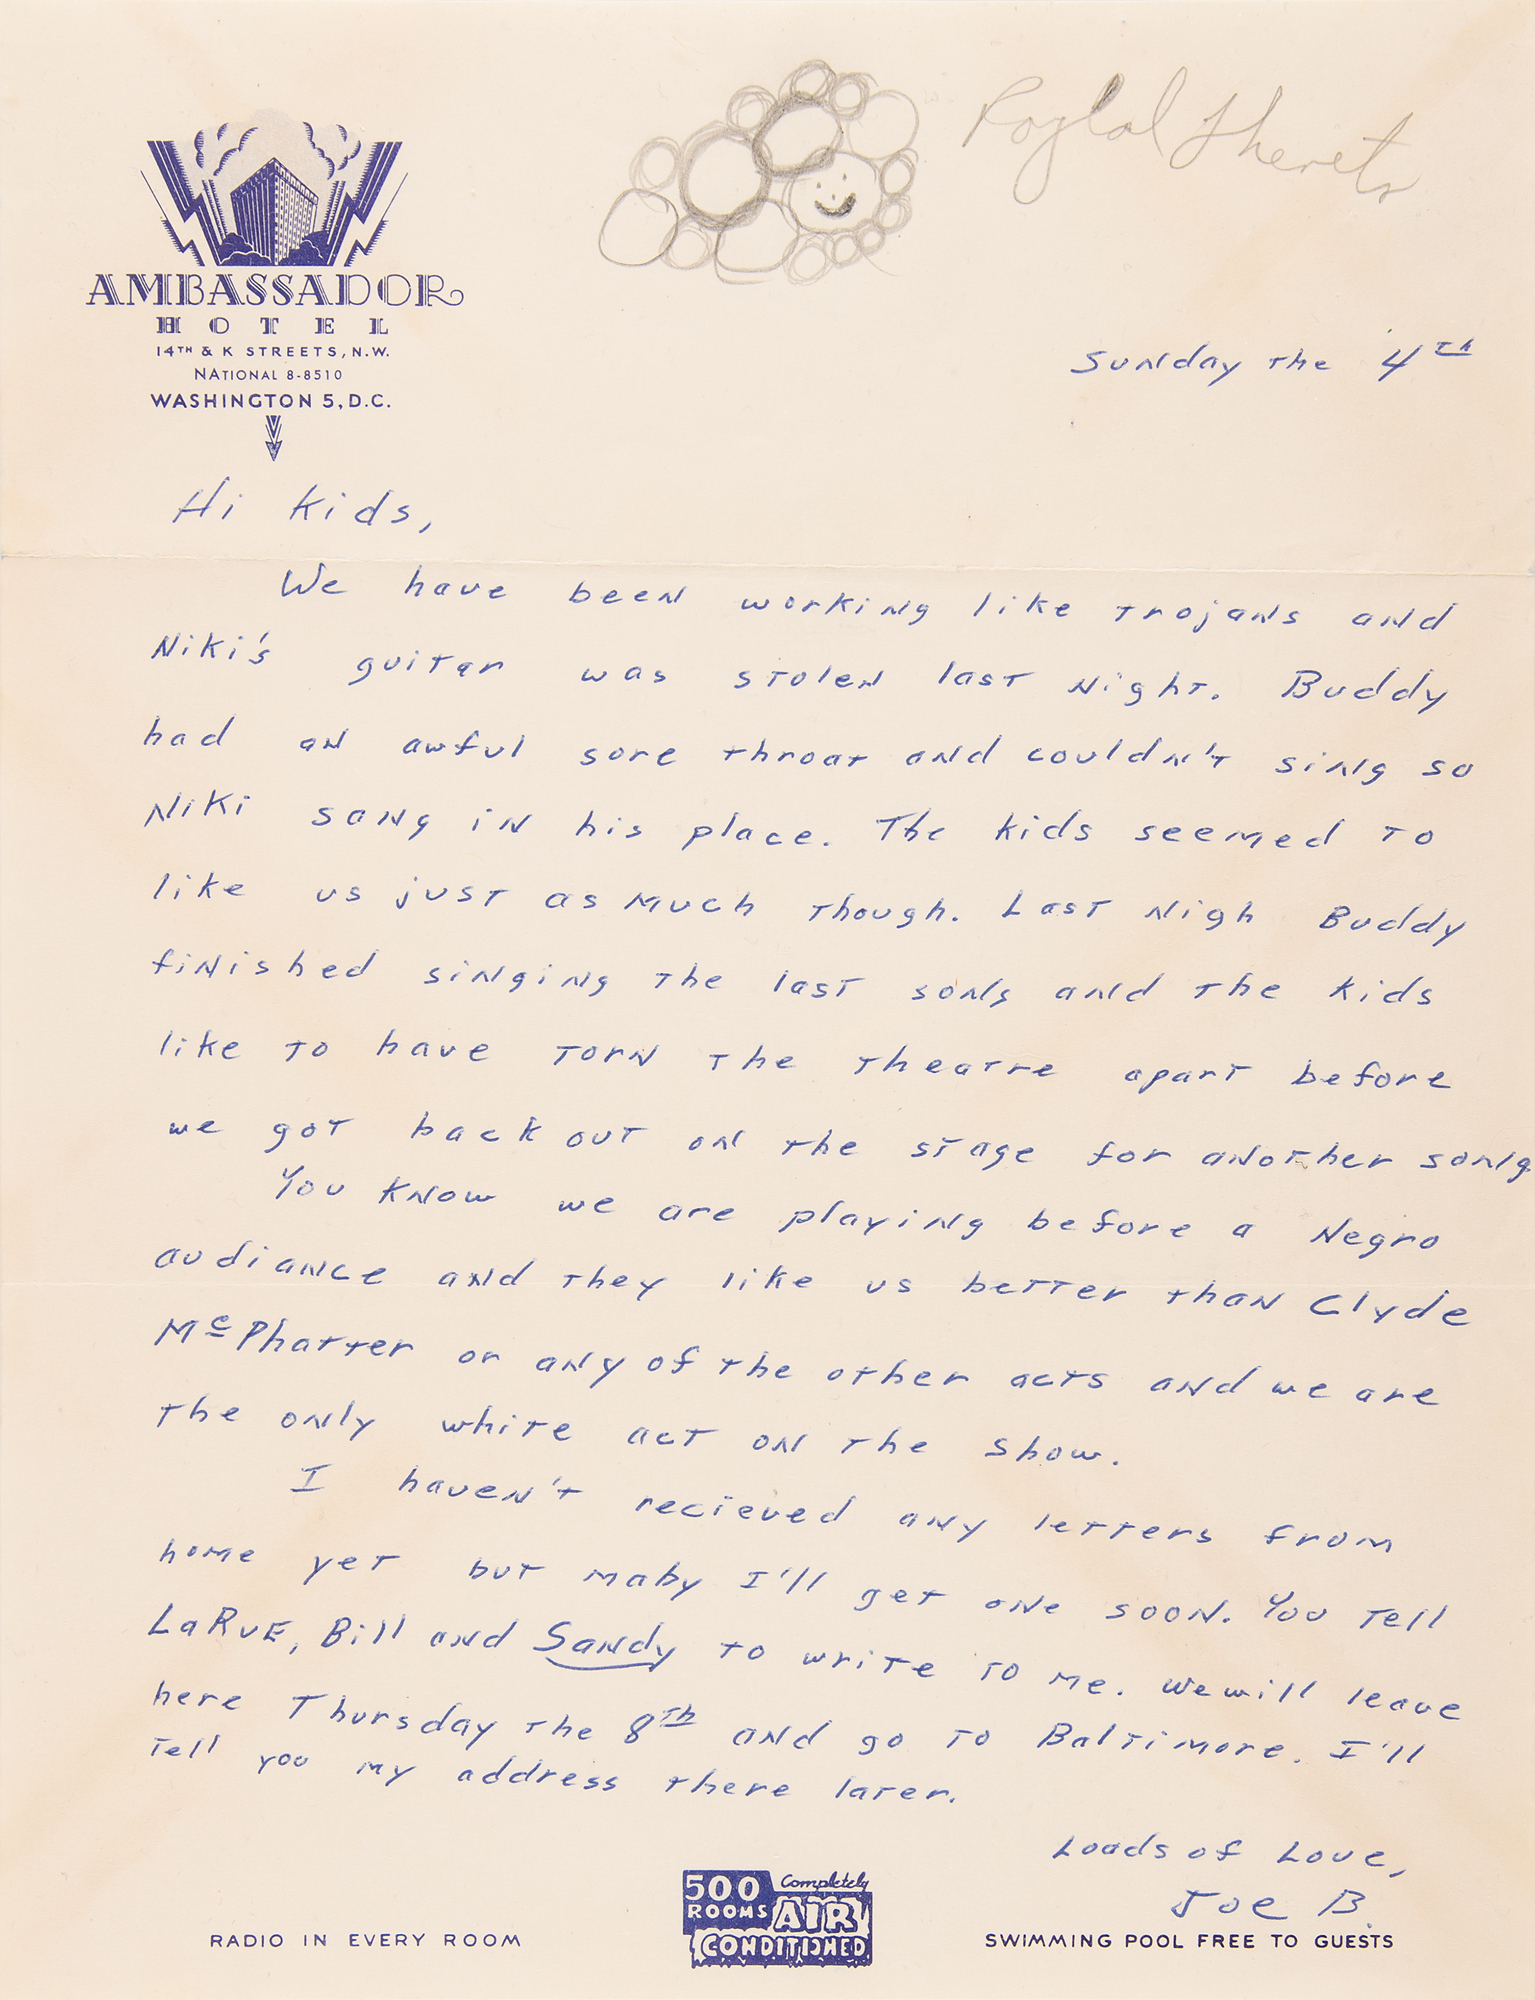 AMBASSADOR
HOTEL
14TH & K STREETS, N.W.
NATIONAL 8-8510
WASHINGTON 5, D.C.
Sunday the 4th
Hi Kids,
We have been working like trojans and
Niki's guitar was stolen last night. Buddy
had an awful sore throat and couldn't sing so
Niki sang in his place. The kids seemed to
like us just as much though. Last nigh Buddy
finished singing the last song and the kids
like to have torn the theatre apart before
we got back out on the stage for another song
You know we are playing before a Negro
audiance and they like us better than Clyde
McPhatter or any of the other acts and we are
the only white act on the show.
I haven't recieved any letters from
home yet but maby I'll get one soon. You tell
LaRue, Bill and Sandy to write to me. We will leave
here Thursday the 8th and go to Baltimore. I'll
tell you my address there later.
Loads of Love,
Joe B.
RADIO IN EVERY ROOM
500 ROOMS Completely AIR CONDITIONED
SWIMMING POOL FREE TO GUESTS